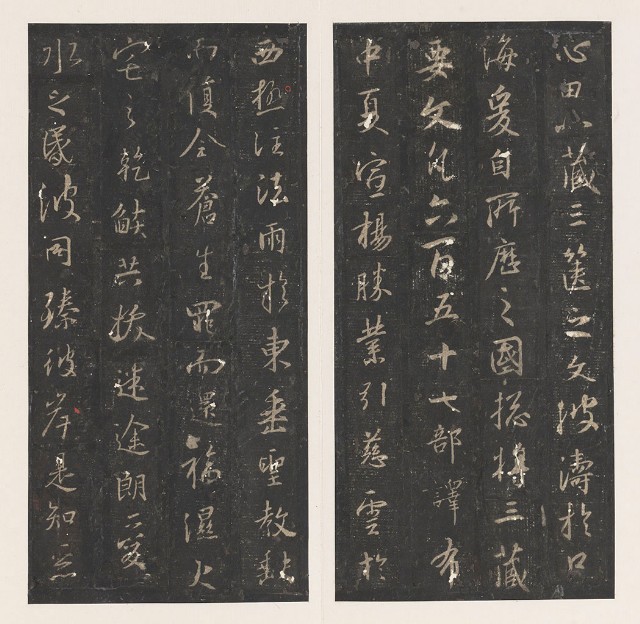 心田八藏三篋之文波濤於口
海爰自所歷之國總將三藏
要文凡六百五十七部譯布
中夏宣揚勝業引慈雲於
西極注法雨於東垂聖教缺
而復全蒼生罪而還福濕火
宅之乾燄共拔迷途朗愛
水之昏波同臻彼岸是知惡